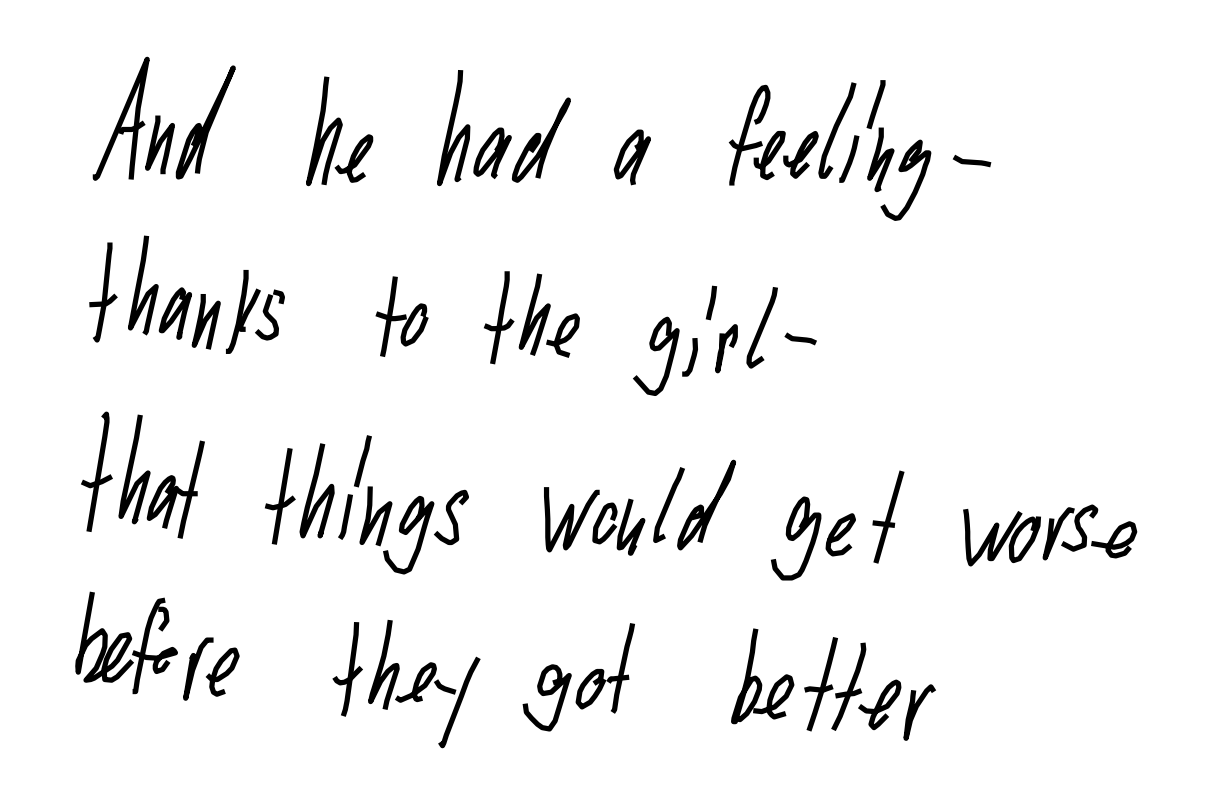 And he had a feeling-
thanks to the girl-
that things would get worse
before they got better